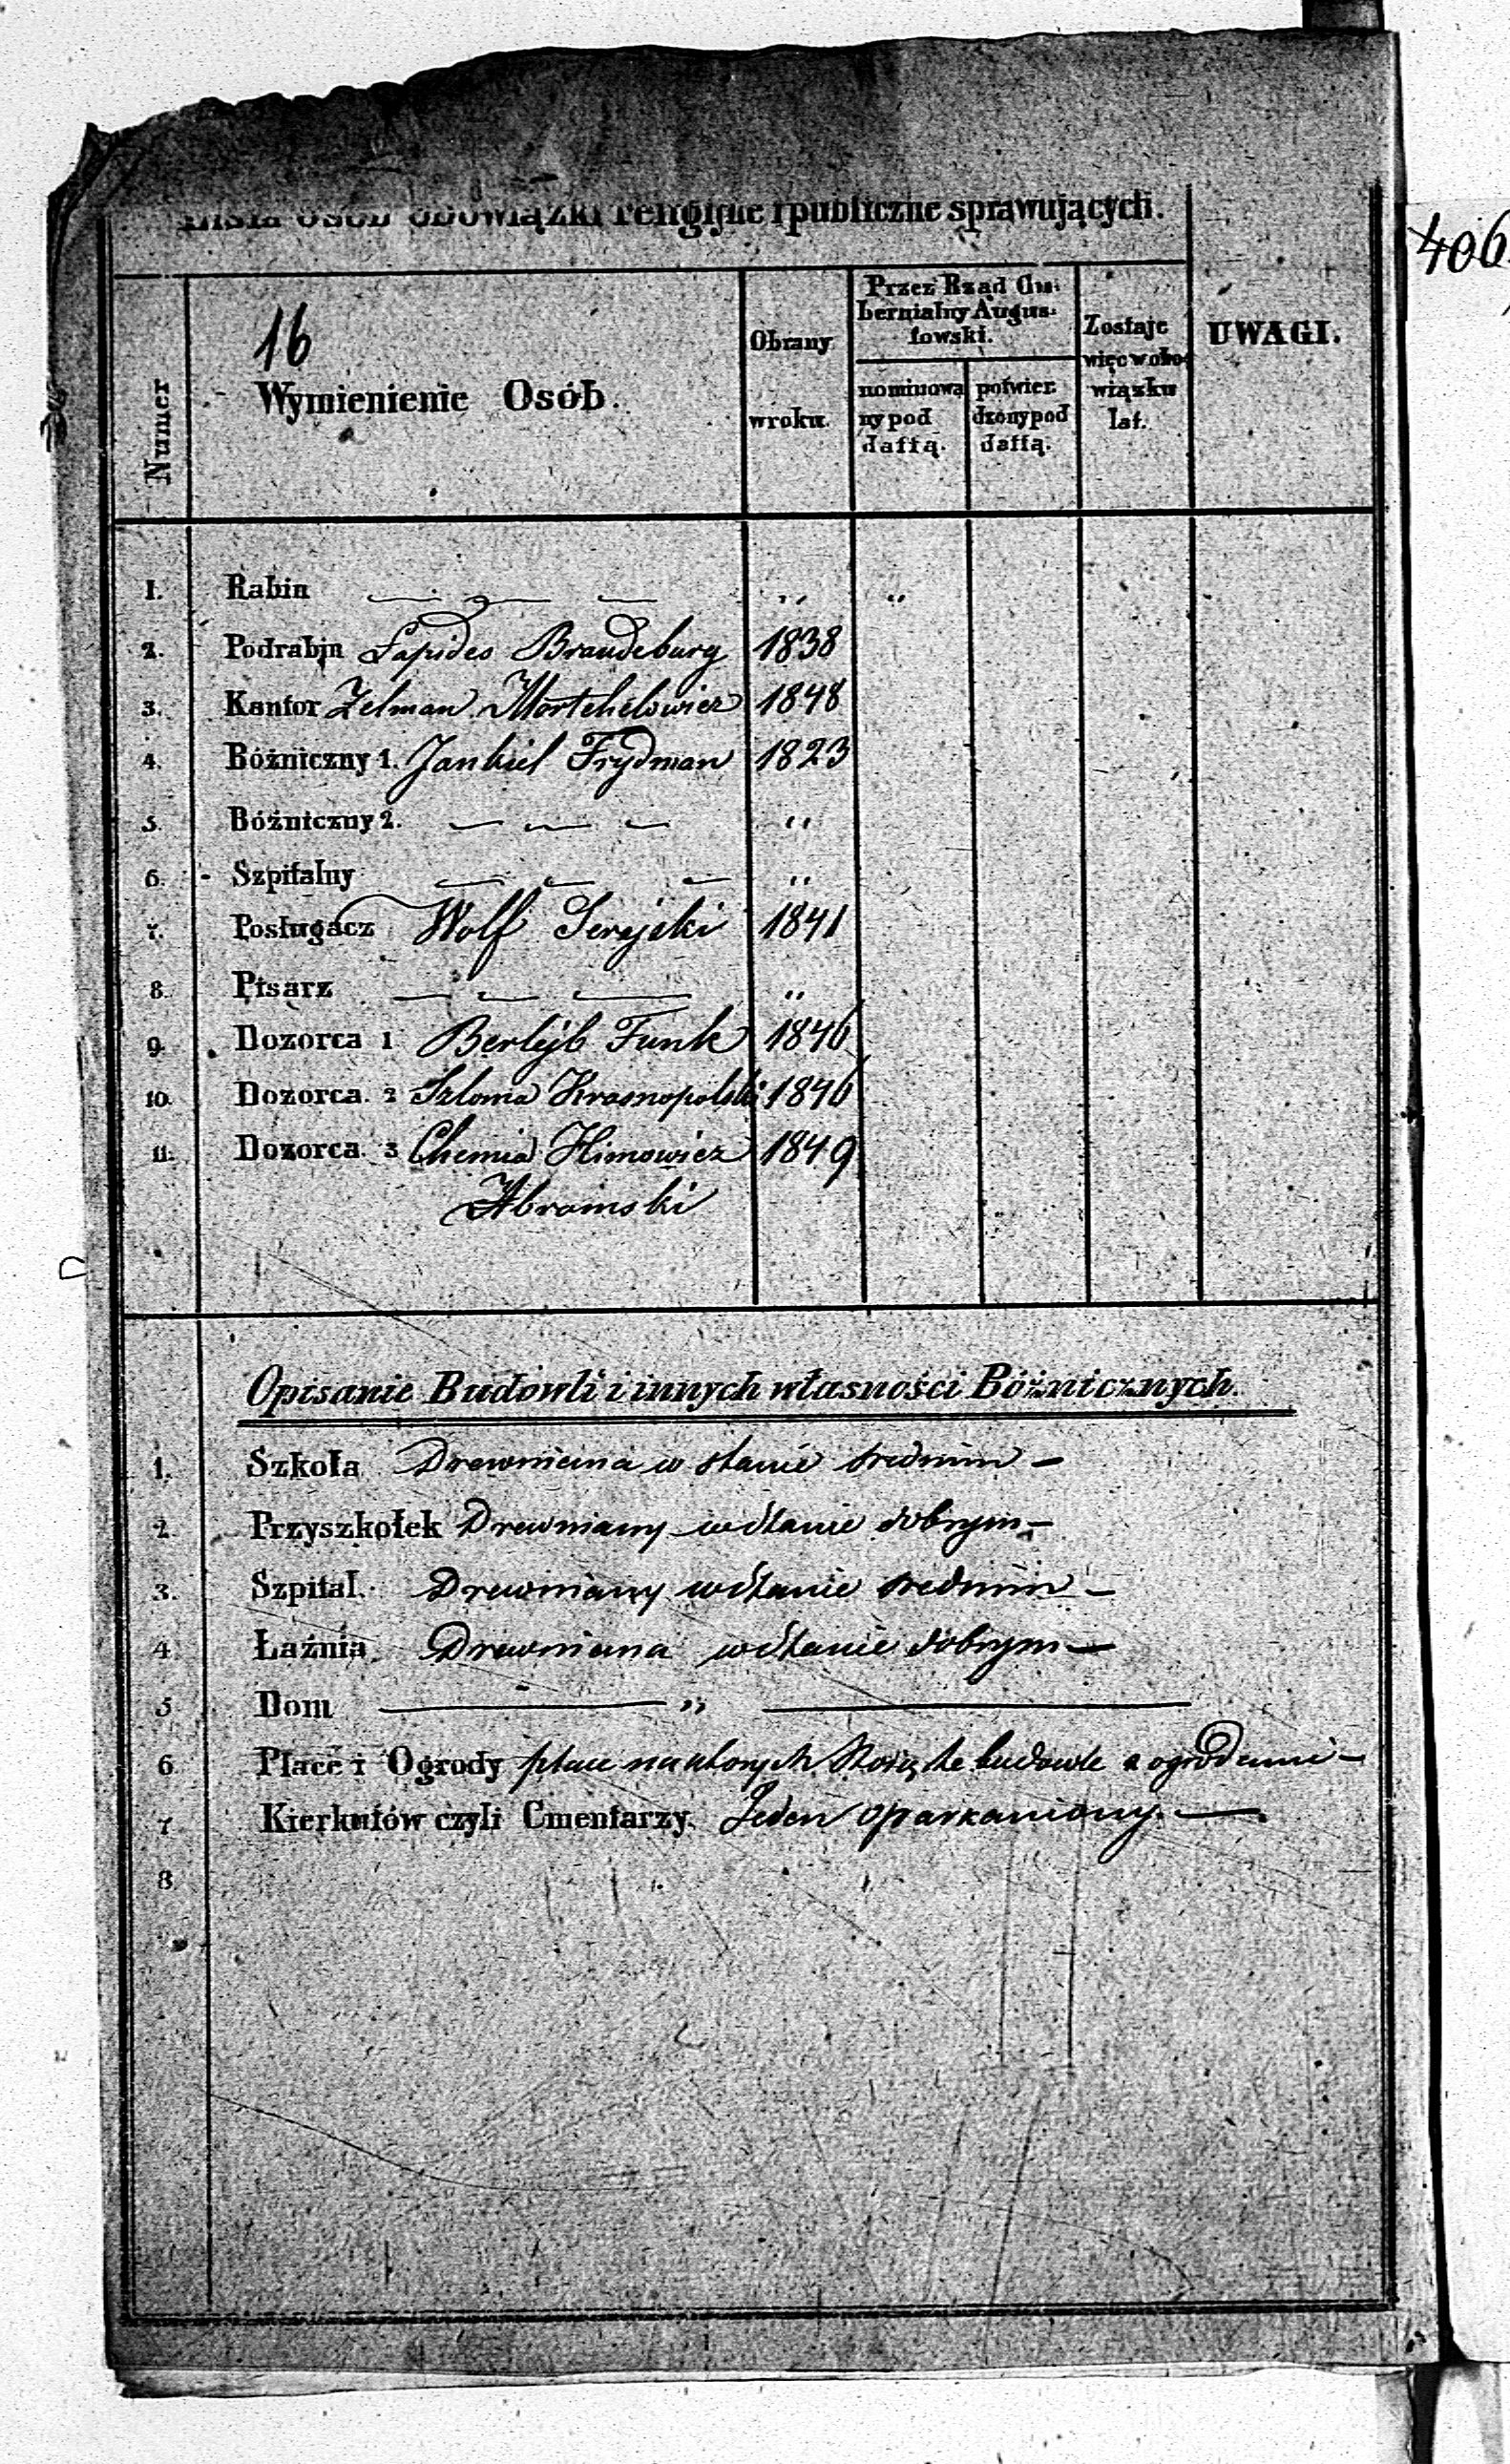 Lista osób obowiązki religijne i publiczne sprawujących.
406
Numer
16
Wymienienie Osób.
Obrany w roku.
Przez Rząd Gubernialny Augustowski.
nominowany pod dattą.
potwierdzony pod dattą.
Zostaje więc w obowiązku lat.
UWAGI.
1. Rabin — — — " "
2. Podrabin Lapides Brandeburg 1838
3. Kantor Zelman Mortchelowicz 1848
4. Bóżniczny 1. Jankiel Frydman 1823
5. Bóżniczny 2. — — — "
6. Szpitalny — — — "
7. Posługacz Wolf Serejski 1841
8. Pisarz — — — "
9. Dozorca 1 Berlejb Funk 1846
10. Dozorca. 2 Szloma Krasnopolski 1846
11. Dozorca. 3 Chemia Himowicz 1849
Abramski
Opisanie Budowli i innych własności Bóżnicznych.
1. Szkoła Drewniana w stanie srednim —
2. Przyszkołek Drewniany w stanie dobrym —
3. Szpital. Drewniany w stanie srednim —
4. Łaźnia Drewniana w stanie dobrym —
5 Dom — " —
6 Place i Ogrody place na ktorych stoią te budowle z ogrodami —
7 Kierkutów czyli Cmentarzy. Jeden oparkaniony. —
8